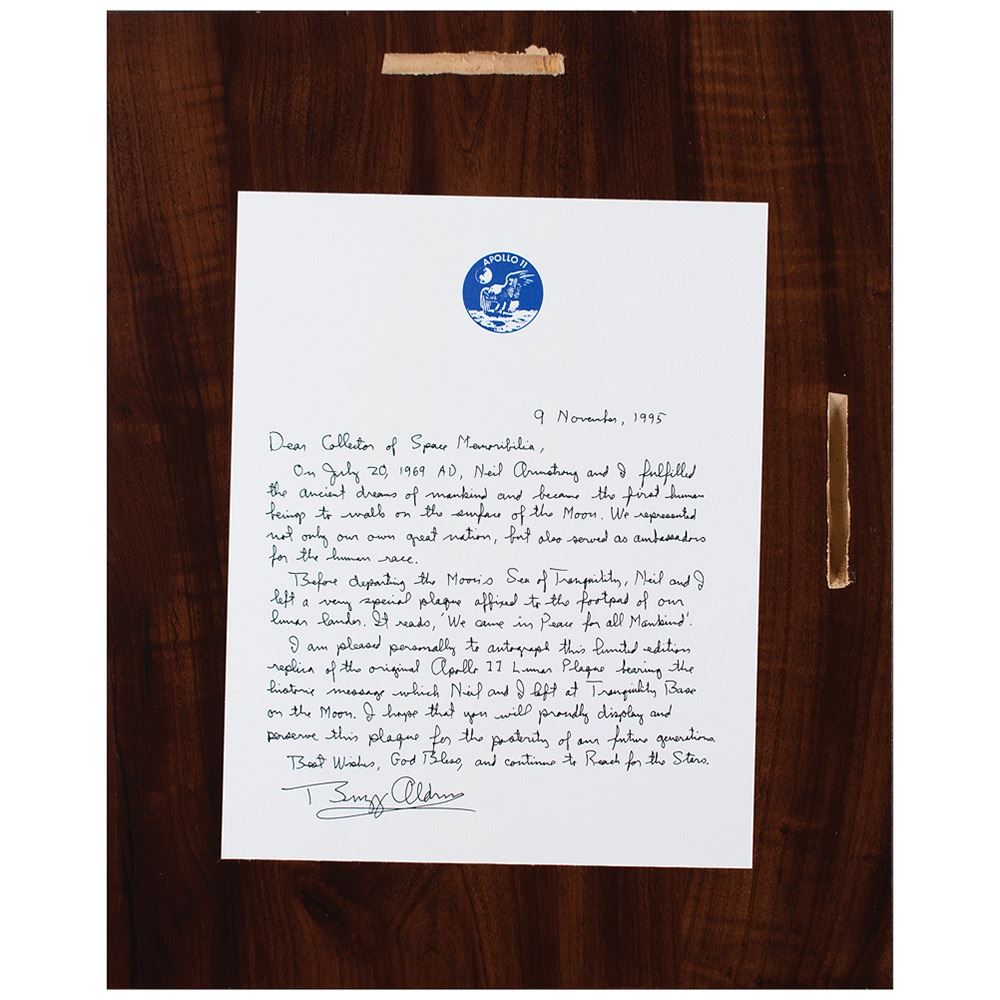 APOLLO 11
9 November, 1995
Dear Collector of Space Memoribilia,
On July 20, 1969 AD, Neil Armstrong and I fulfilled
the ancient dreams of mankind and became the first human
beings to walk on the surface of the Moon. We represented
not only our own great nation, but also served as ambassadors
for the human race.
Before departing the Moon's Sea of Tranquility, Neil and I
left a very special plaque affixed to the footpad of our
lunar lander. It reads, 'We came in Peace for all Mankind'.
I am pleased personally to autograph this limited edition
replica of the original Apollo 11 Lunar Plaque bearing the
historic message which Neil and I left at Tranquility Base
on the Moon. I hope that you will proudly display and
perserve this plaque for the posterity of our future generations.
Best Wishes, God Bless, and continue to Reach for the Stars.
Buzz Aldrin